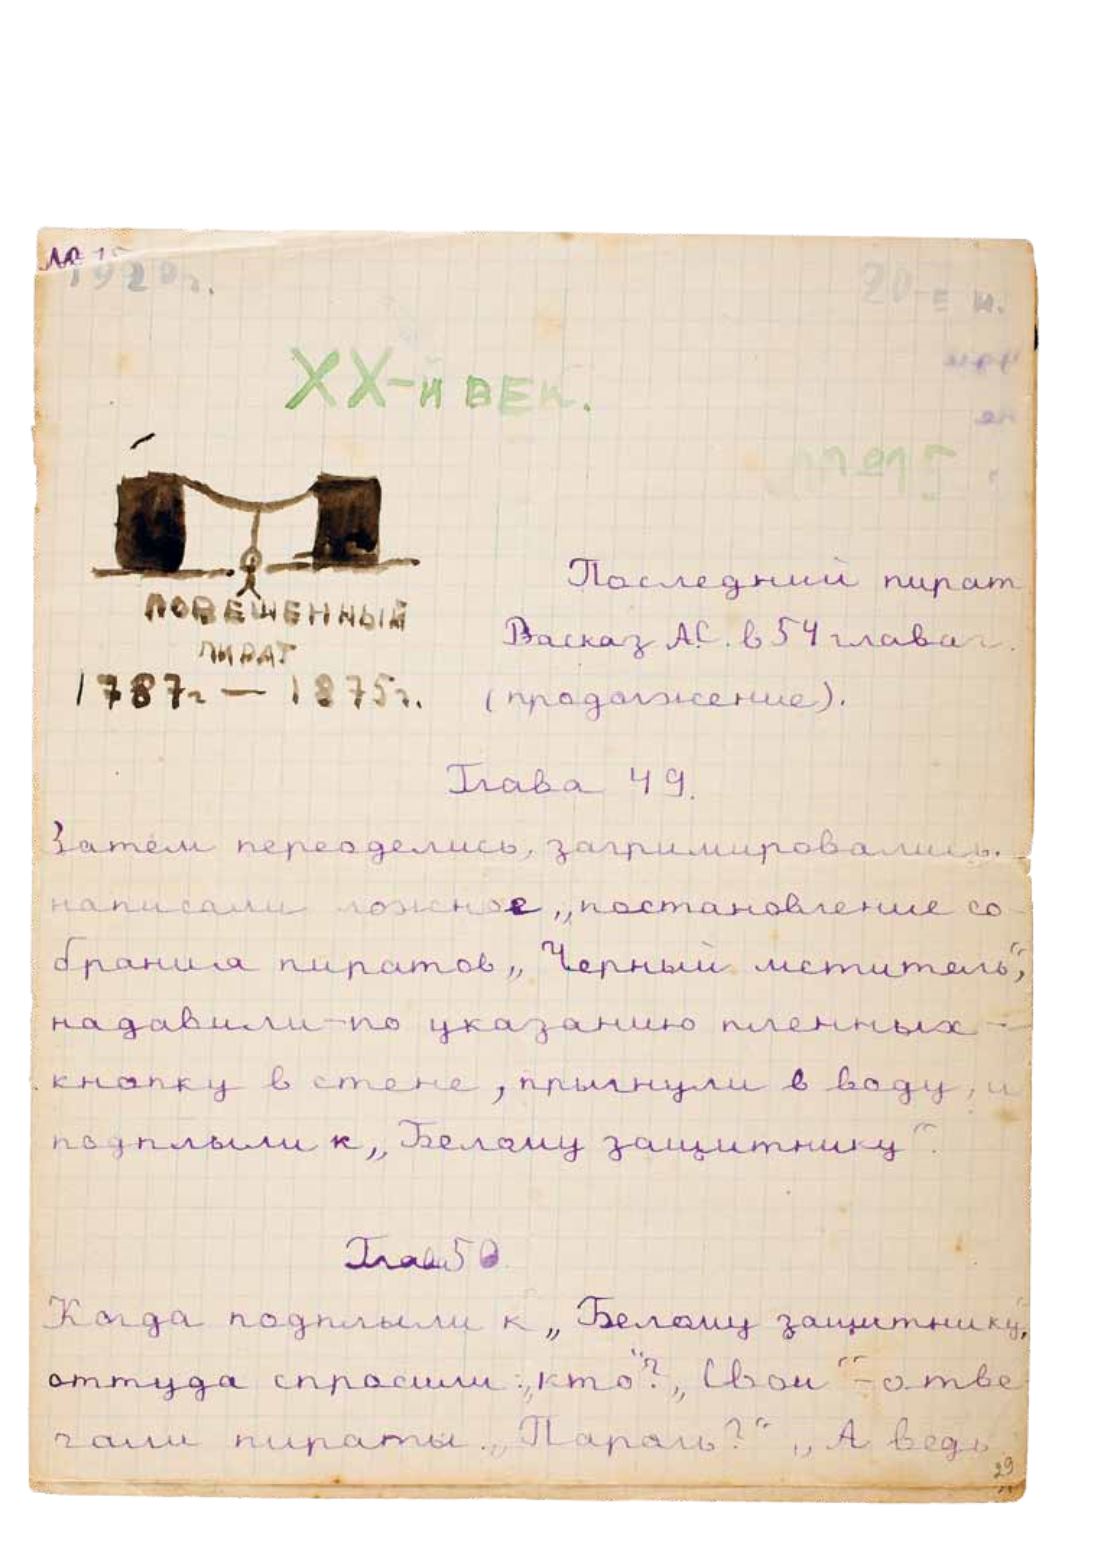 № 15
1920г.
XX-й ВЕК.
№15
ПОВЕШЕННЫЙ
ПИРАТ
1787г — 1875г.
Последний пират
Расказ А.С. в 54 главах.
(продолжение).
Глава 49.
Затем переоделись, загримировались.
написали ложное „постановление со-
брания пиратов„ Черный мститель“,
надавили-по указанию пленных-
кнопку в стене, прыгнули в воду, и
подплыли к „Белому защитнику“.
Глав 50
Когда подплыли к „Белому защитнику,
оттуда спросили: „кто“? „Свои“-отве
чали пираты. „Пароль?“ „А ведь
29